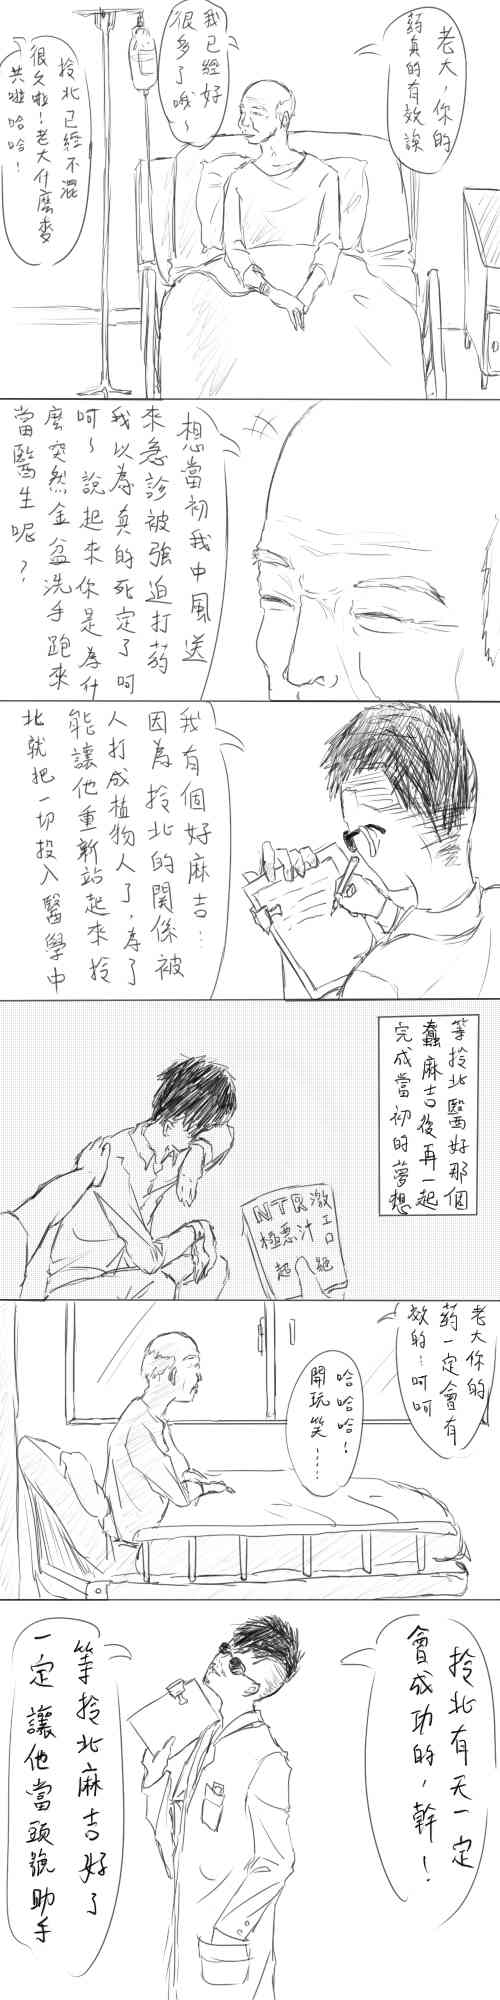 老大，你的
藥真的有效誒
我已經好
很多了哦～
拎北已經不混
很久啦！老大什麼麥
共啦哈哈！
想當初我中風送
來急診被強迫打药
我以為真的死定了呵
呵～說起來你是為什
麼突然金盆洗手跑來
當醫生呢？
我有個好麻吉…
因為拎北的關係被
人打成植物人了，為了
能讓他重新站起來拎
北就把一切投入醫學中
等拎北醫好那個
蠢麻吉後再一起
完成當初的夢想
NTR激
極悪汁工口
超絕
老大你的
药一定會有
效的…呵呵
哈哈哈！
開玩笑……
拎北有天一定
會成功的，幹！
等拎北麻吉好了
一定讓他當頭號助手